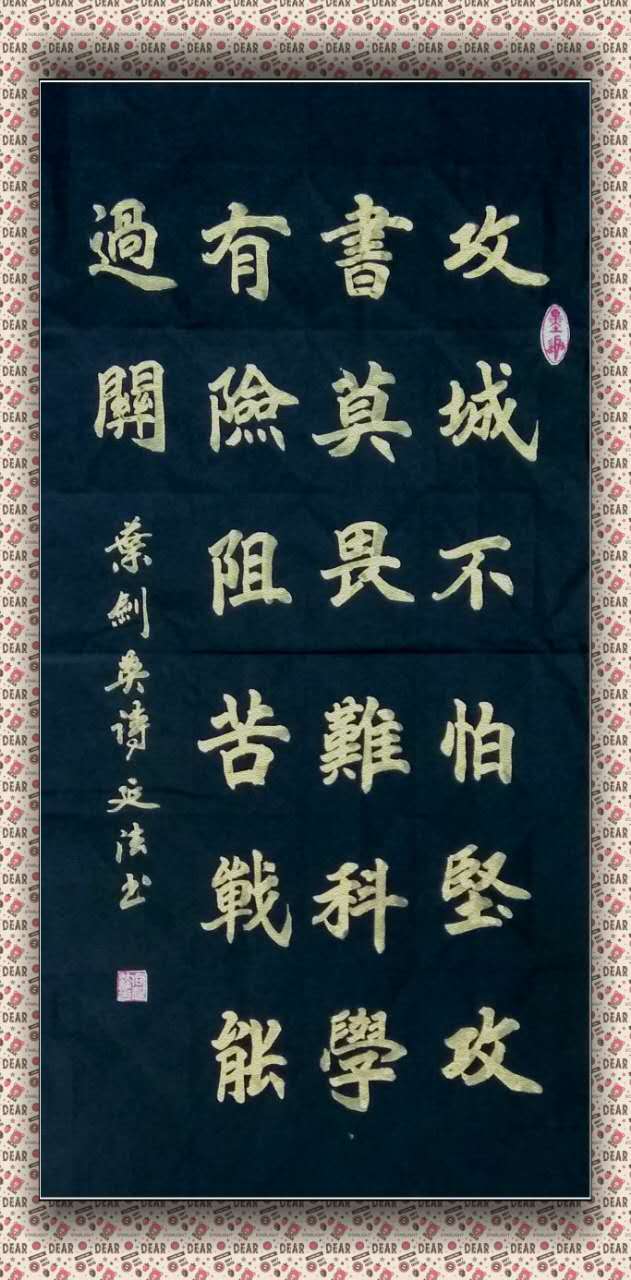 攻城不怕堅攻
書莫畏難科學
有險阻苦戰能
過關
葉劍英詩延法书
墨海
DEAR
STARLIGHT